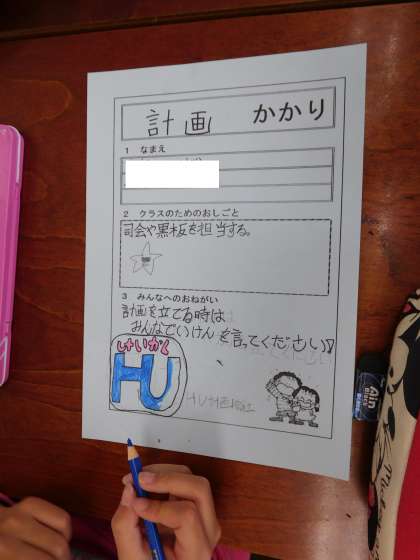 計画 かかり
1 なまえ
2 クラスのためのおしごと
司会や黒板を担当する。
3 みんなへのおねがい
計画を立てる時は
みんなでいけんを言ってください
けいかく
HU
Ain